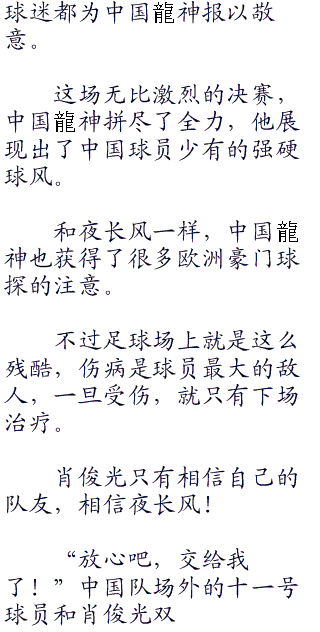 球迷都为中国龍神报以敬
意。
这场无比激烈的决赛，
中国龍神拼尽了全力，他展
现出了中国球员少有的强硬
球风。
和夜长风一样，中国龍
神也获得了很多欧洲豪门球
探的注意。
不过足球场上就是这么
残酷，伤病是球员最大的敌
人，一旦受伤，就只有下场
治疗。
肖俊光只有相信自己的
队友，相信夜长风！
“放心吧，交给我
了！”中国队场外的十一号
球员和肖俊光双